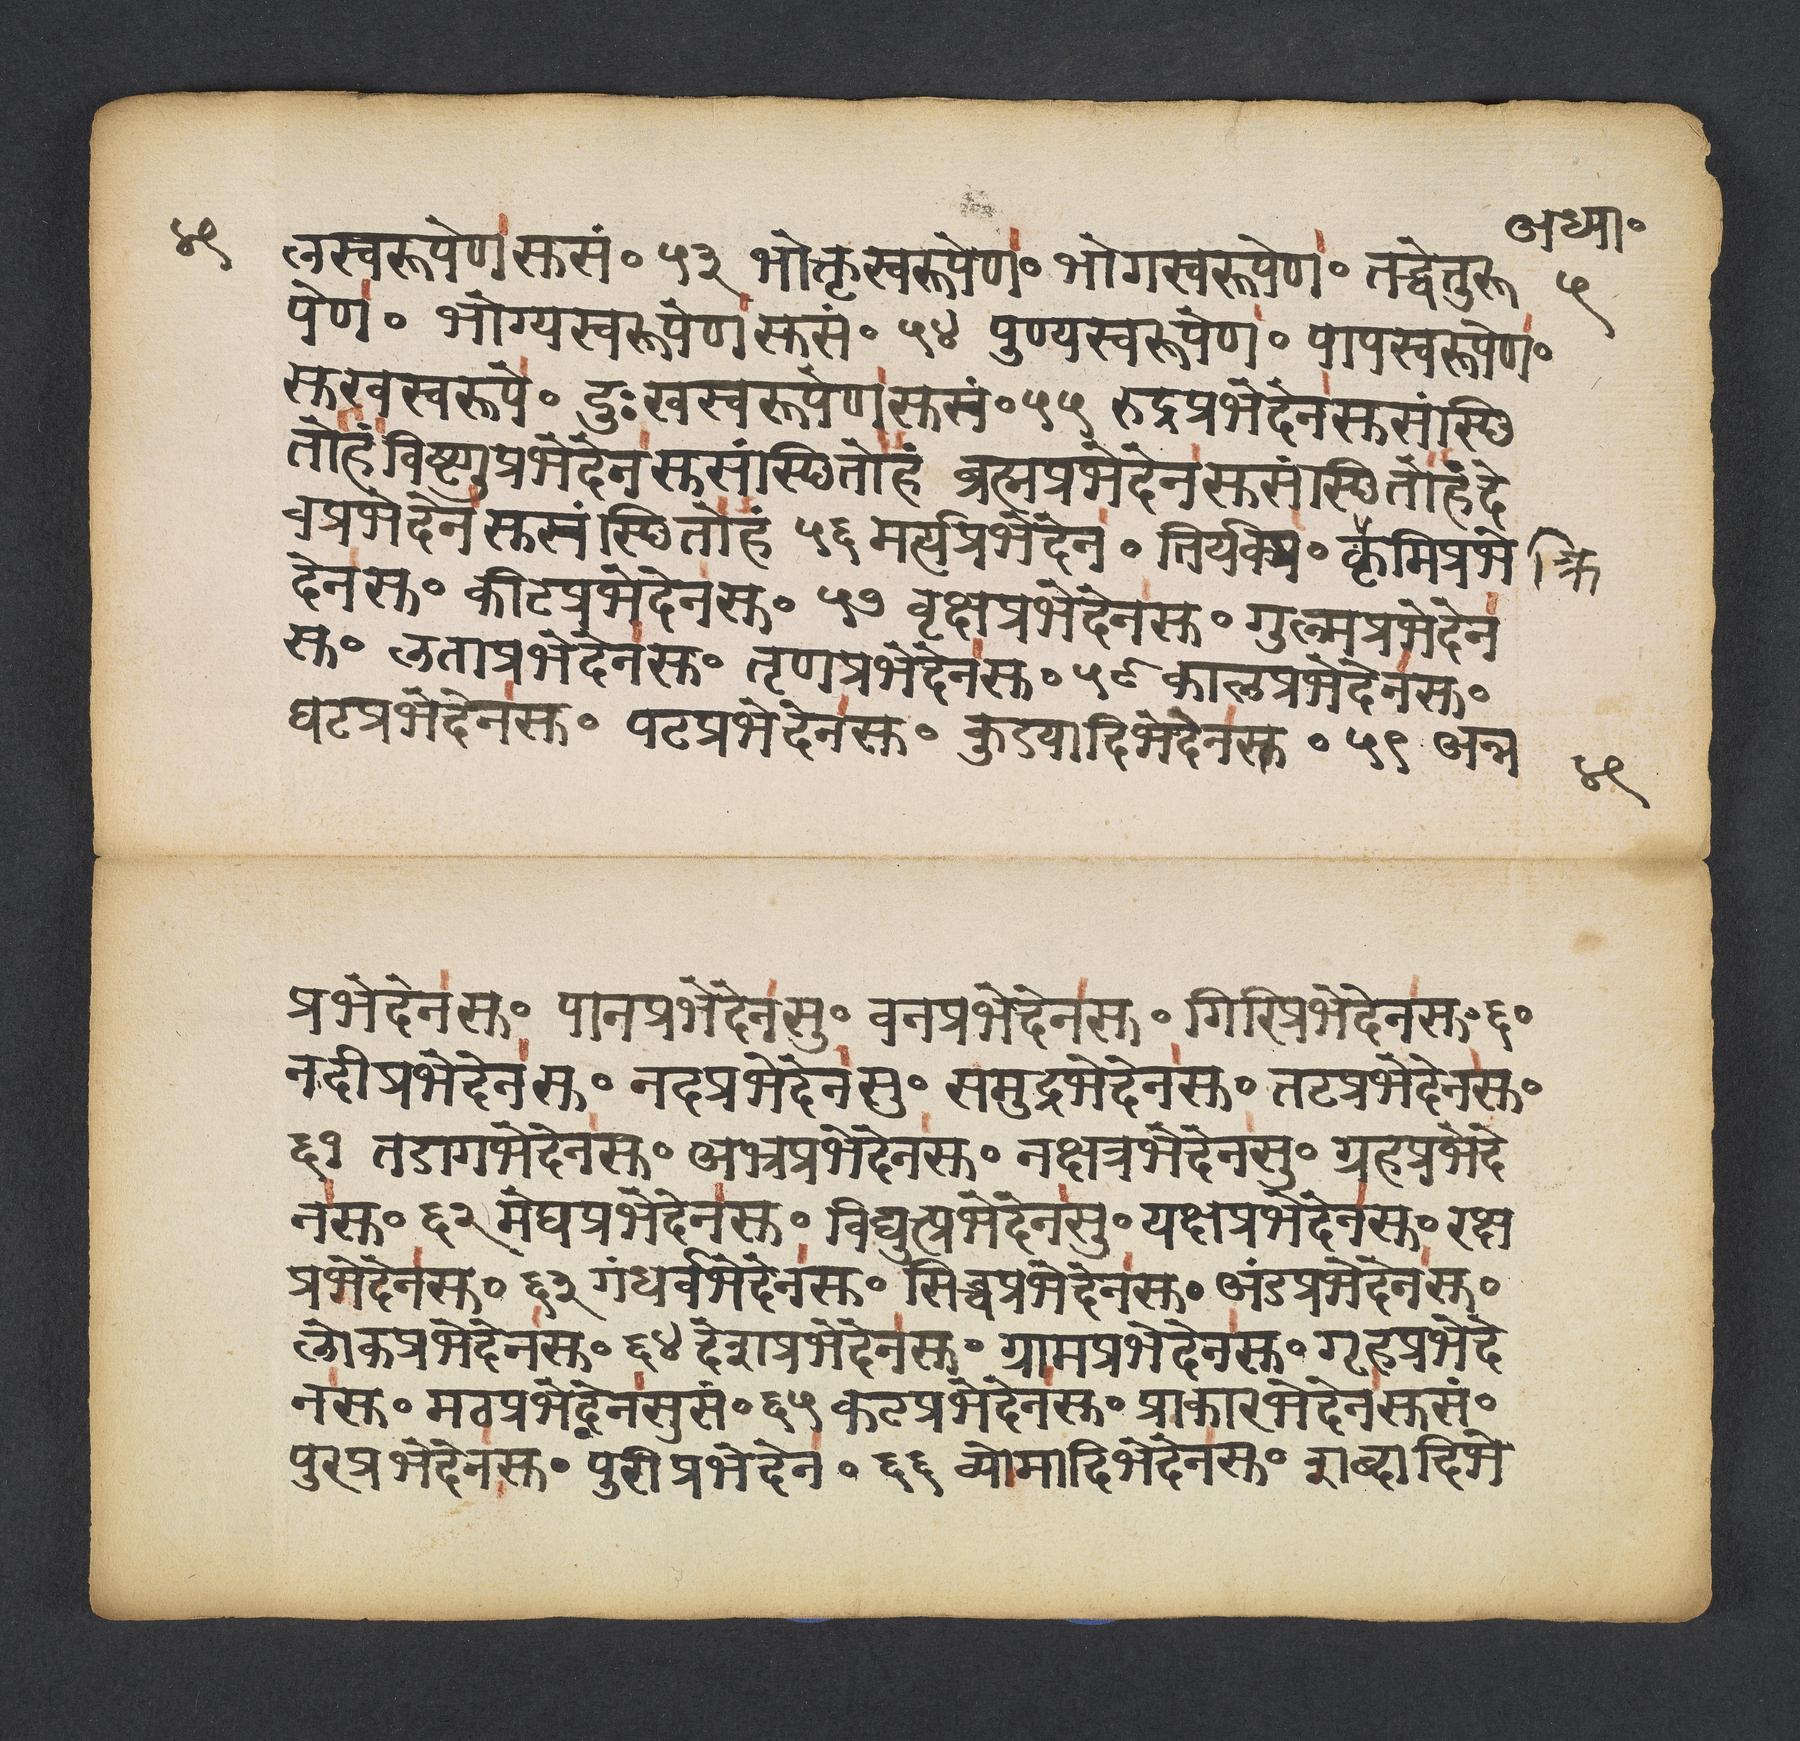 अध्या॰
४९
लस्वरूपेण सुसं॰ ५३ भोक्तृस्वरूपेण॰ भोगस्वरूपेण॰ तद्धेतुरू
५
पेण॰ भोग्यस्वरूपेण सुसं॰ ५४ पुण्यस्वरूपेण॰ पापस्वरूपेण॰
सुखस्वरूपे॰ दुःखस्वरूपेण सुसं॰ ५५ रुद्रप्रभेदेन सुसंस्थि
तोहं विष्णुप्रभेदेन सुसंस्थितोहं ब्रह्मप्रभेदेन सुसंस्थितोहं दे
वप्रभेदेन सुसंस्थितोहं ५६ मर्त्यप्रभेदेन॰ तिर्यक्प्र॰ कृमिप्रभे
क्रि
देनसु॰ कीटप्रभेदेनसु॰ ५७ वृक्षप्रभेदेनसु॰ गुल्मप्रभेदेन
सु॰ लताप्रभेदेनसु॰ तृणप्रभेदेनसु॰ ५८ कालप्रभेदेनसु॰
घटप्रभेदेनसु॰ पटप्रभेदेनसु॰ कुड्यादिभेदेनसु॰ ५९ अन्न
४९
प्रभेदेनसु॰ पानप्रभेदेनसु॰ वनप्रभेदेनसु॰ गिरिप्रभेदेनसु॰ ६०
नदीप्रभेदेनसु॰ नदप्रभेदेनसु॰ समुद्रभेदेनसु॰ तटप्रभेदेनसु॰
६१ तडागभेदेनसु॰ अभ्रप्रभेदेनसु॰ नक्षत्रभेदेनसु॰ ग्रहप्रभेदे
नसु॰ ६२ मेघप्रभेदेनसु॰ विद्युत्प्रभेदेनसु॰ यक्षप्रभेदेनसु॰ रक्ष
प्रभेदेनसु॰ ६३ गंधर्वभेदेनसु॰ सिद्धप्रभेदेनसु॰ अंडप्रभेदेनसु॰
लोकप्रभेदेनसु॰ ६४ देशप्रभेदेनसु॰ ग्रामप्रभेदेनसु॰ गृहप्रभेदे
नसु॰ मठप्रभेदेनसुसं॰ ६५ कटप्रभेदेनसु॰ प्राकारभेदेनसुसं॰
पुरप्रभेदेनसु॰ पुरीप्रभेदेन॰ ६६ व्योमादिभेदेनसु॰ शब्दादिभे